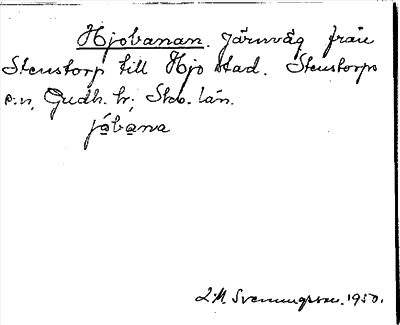 Hjobanan. Järnväg från
Stenstorp till Hjo stad. Stenstorps
s:n, Gudh. hr; Skb. län.
jôbana
L:M Svenungsson. 1950.